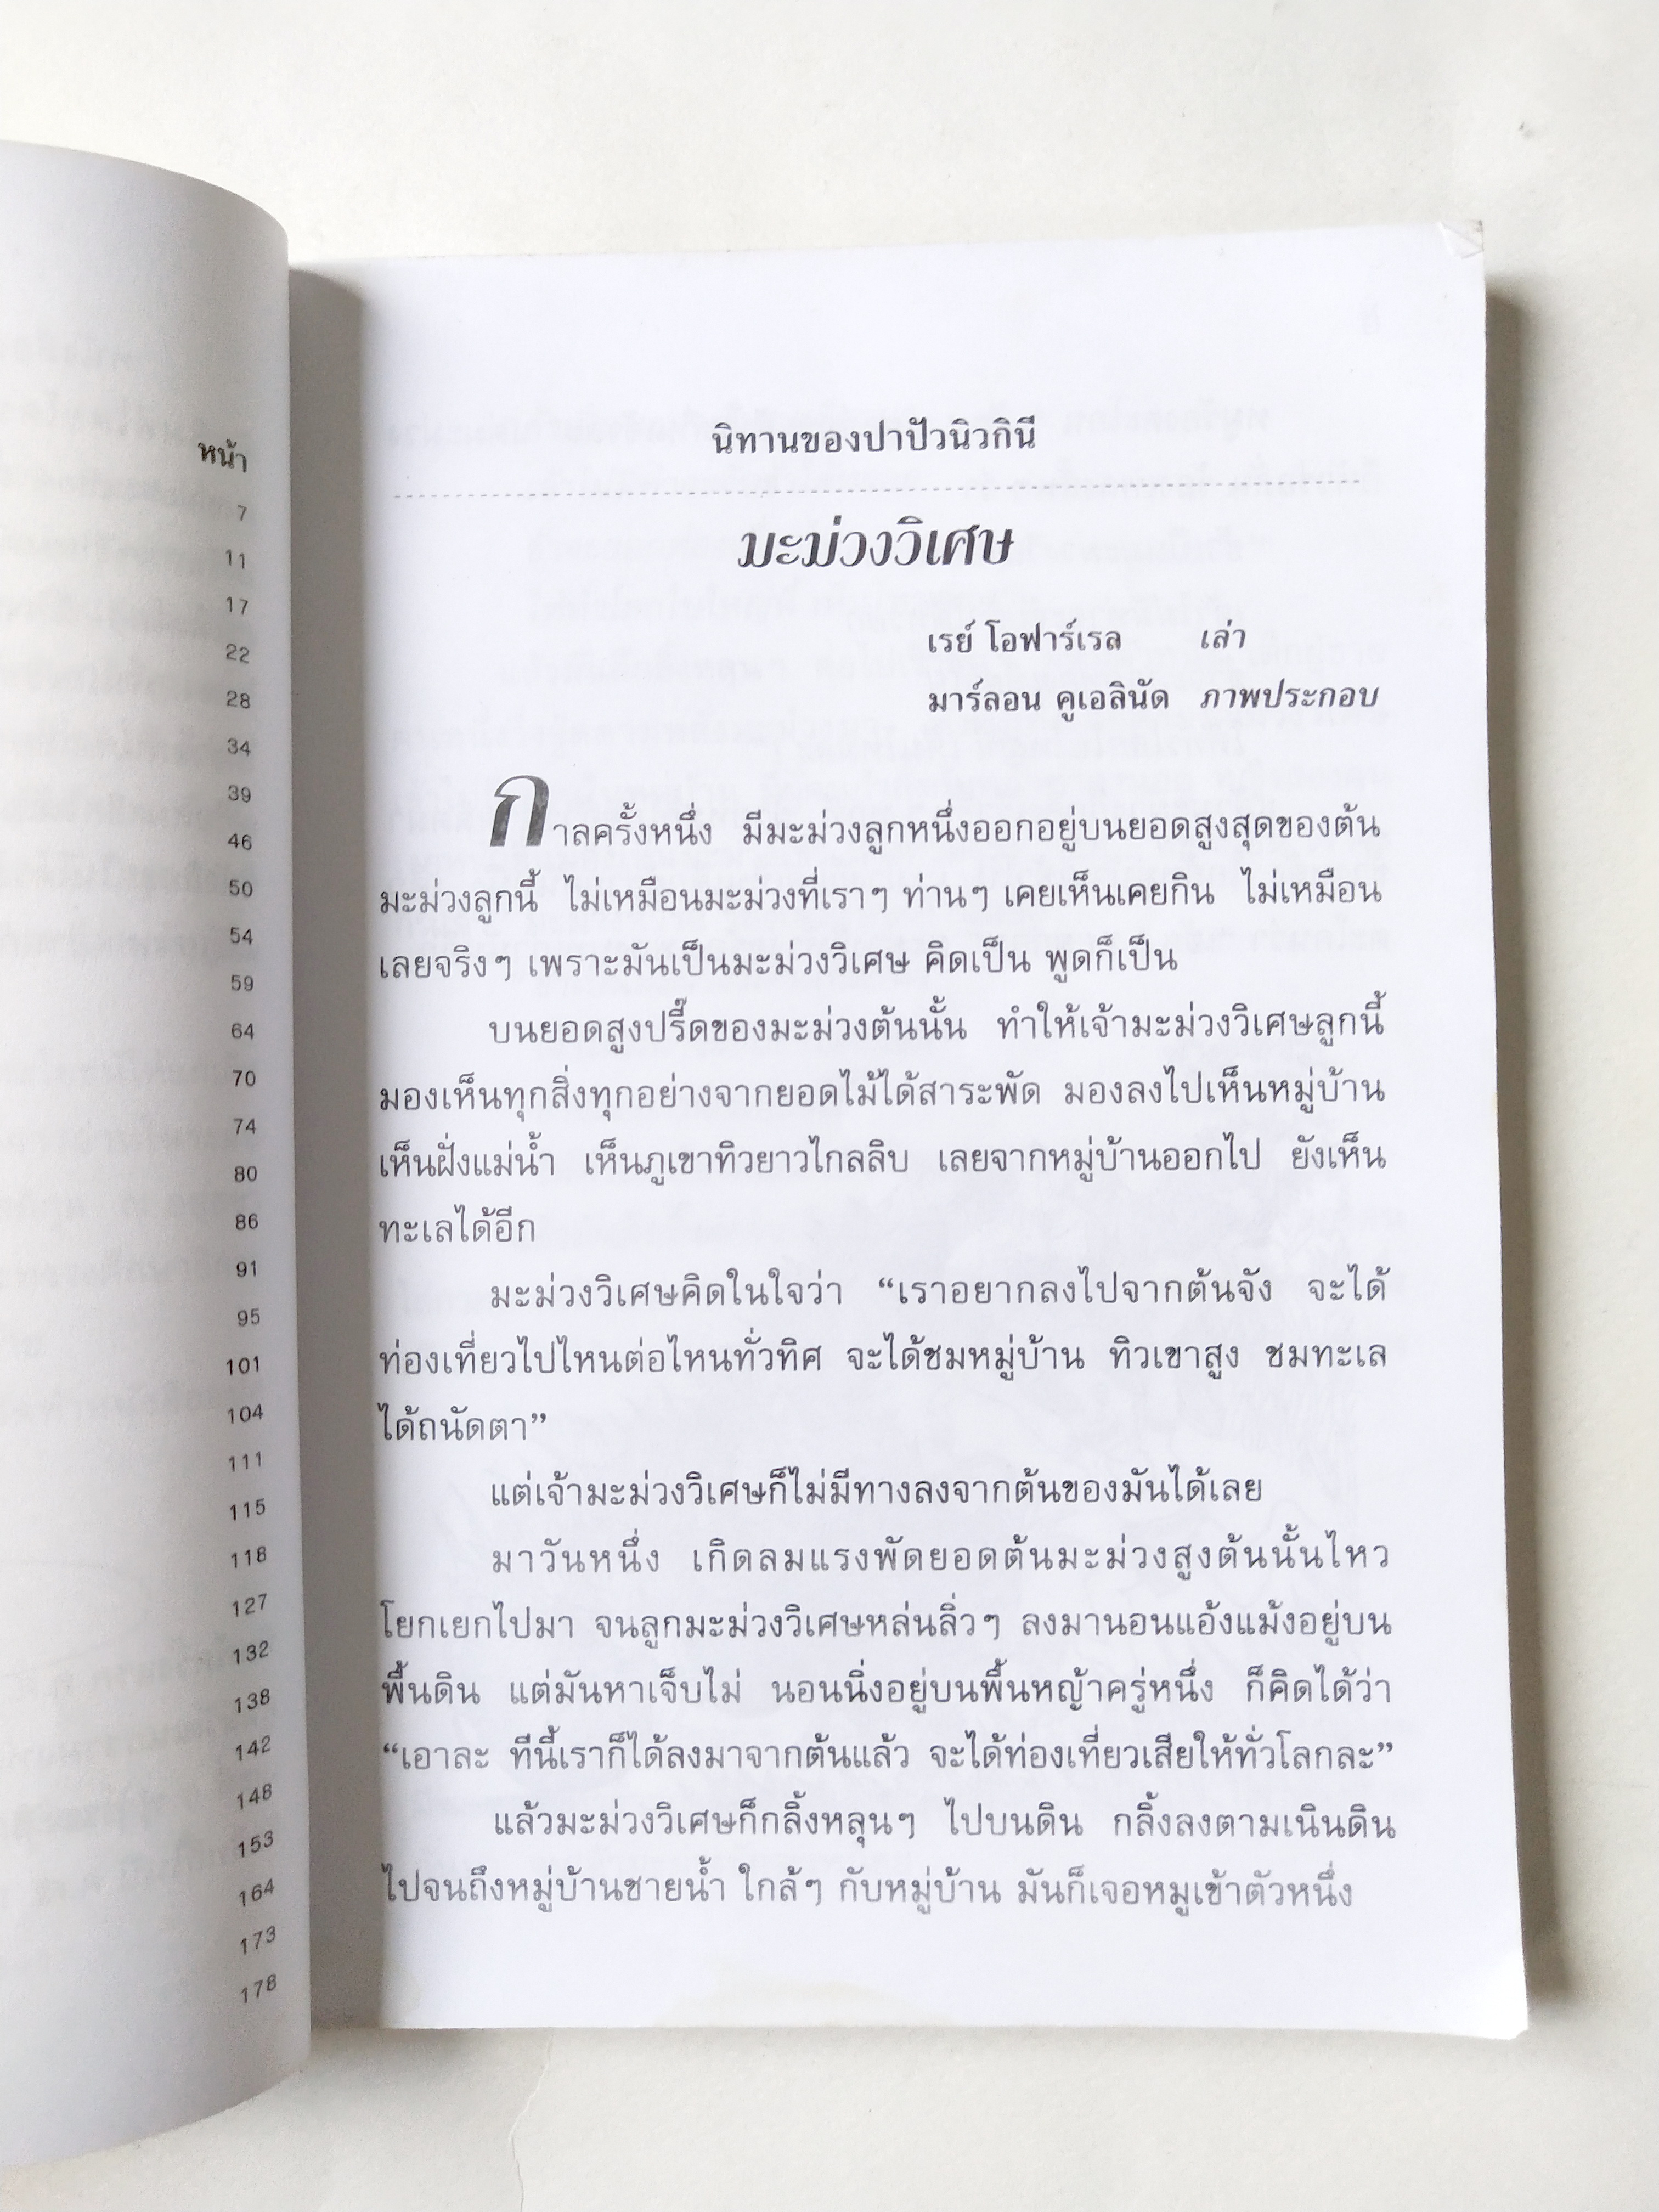 หน้า
7
11
17
22
28
34
39
46
50
54
59
64
70
74
80
86
91
95
101
104
111
115
118
127
132
138
142
148
153
164
173
178
นิทานของปาปัวนิวกินี
มะม่วงวิเศษ
เรย์ โอฟาร์เรล เล่า
มาร์ลอน คูเอลินัด ภาพประกอบ
กาลครั้งหนึ่ง มีมะม่วงลูกหนึ่งออกอยู่บนยอดสูงสุดของต้น
มะม่วงลูกนี้ ไม่เหมือนมะม่วงที่เราๆ ท่านๆ เคยเห็นเคยกิน ไม่เหมือน
เลยจริงๆ เพราะมันเป็นมะม่วงวิเศษ คิดเป็น พูดก็เป็น
บนยอดสูงปรี๊ดของมะม่วงต้นนั้น ทำให้เจ้ามะม่วงวิเศษลูกนี้
มองเห็นทุกสิ่งทุกอย่างจากยอดไม้ได้สาระพัด มองลงไปเห็นหมู่บ้าน
เห็นฝั่งแม่น้ำ เห็นภูเขาทิวยาวไกลลิบ เลยจากหมู่บ้านออกไป ยังเห็น
ทะเลได้อีก
มะม่วงวิเศษคิดในใจว่า “เราอยากลงไปจากต้นจัง จะได้
ท่องเที่ยวไปไหนต่อไหนทั่วทิศ จะได้ชมหมู่บ้าน ทิวเขาสูง ชมทะเล
ได้ถนัดตา”
แต่เจ้ามะม่วงวิเศษก็ไม่มีทางลงจากต้นของมันได้เลย
มาวันหนึ่ง เกิดลมแรงพัดยอดต้นมะม่วงสูงต้นนั้นไหว
โยกเยกไปมา จนลูกมะม่วงวิเศษหล่นลิ่วๆ ลงมานอนแอ้งแม้งอยู่บน
พื้นดิน แต่มันหาเจ็บไม่ นอนนิ่งอยู่บนพื้นหญ้าครู่หนึ่ง ก็คิดได้ว่า
“เอาละ ทีนี้เราก็ได้ลงมาจากต้นแล้ว จะได้ท่องเที่ยวเสียให้ทั่วโลกละ”
แล้วมะม่วงวิเศษก็กลิ้งหลุนๆ ไปบนดิน กลิ้งลงตามเนินดิน
ไปจนถึงหมู่บ้านชายน้ำ ใกล้ๆ กับหมู่บ้าน มันก็เจอหมูเข้าตัวหนึ่ง